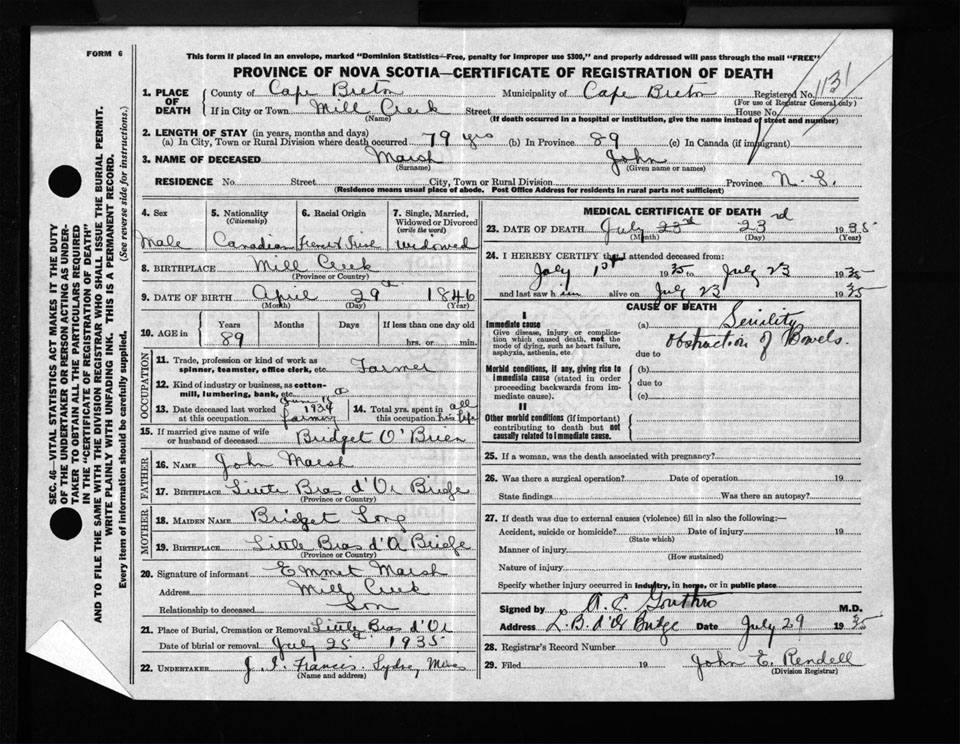 FORM 6
This form if placed in an envelope, marked "Dominion Statistics—Free, penalty for improper use $300," and properly addressed will pass through the mail "FREE"
PROVINCE OF NOVA SCOTIA—CERTIFICATE OF REGISTRATION OF DEATH
1. PLACE OF DEATH
County of Cape Breton Municipality of Cape Breton Registered No. 1131
(For use of Registrar General only)
If in City or Town Mill Creek Street House No.
(Name) (If death occurred in a hospital or institution, give the name instead of street and number)
2. LENGTH OF STAY (in years, months and days)
(a) In City, Town or Rural Division where death occurred 79 yrs (b) In Province 89 (c) In Canada (if immigrant)
3. NAME OF DECEASED Marsh John
(Surname) (Given name or names)
RESIDENCE No. Street City, Town or Rural Division Province N. S.
(Residence means usual place of abode. Post Office Address for residents in rural parts not sufficient)
4. Sex 5. Nationality (Citizenship) 6. Racial Origin 7. Single, Married, Widowed or Divorced (write the word)
Male Canadian French Irish Widowed
8. BIRTHPLACE Mill Creek
(Province or Country)
9. DATE OF BIRTH April 29th 1846
(Month) (Day) (Year)
10. AGE in Years Months Days If less than one day old
89 hrs. or min.
OCCUPATION
11. Trade, profession or kind of work as spinner, teamster, office clerk, etc. Farmer
12. Kind of industry or business, as cotton-mill, lumbering, bank, etc.
13. Date deceased last worked at this occupation June 1934 farmer 14. Total yrs. spent in this occupation all his life
15. If married give name of wife or husband of deceased Bridget O'Brien
FATHER
16. NAME John Marsh
17. BIRTHPLACE Little Bras d'Or Bridge
(Province or Country)
MOTHER
18. MAIDEN NAME Bridget Long
19. BIRTHPLACE Little Bras d'Or Bridge
(Province or Country)
20. Signature of informant Emmet Marsh
Address Mill Creek
Relationship to deceased Son
21. Place of Burial, Cremation or Removal Little Bras d'Or
Date of burial or removal July 25th 1935
22. UNDERTAKER J. J. Francis. Sydney Mines
(Name and address)
MEDICAL CERTIFICATE OF DEATH
23. DATE OF DEATH July 23rd 23rd 1935
(Month) (Day) (Year)
24. I HEREBY CERTIFY that I attended deceased from:
July 1st 1935 to July 23 1935
and last saw him alive on July 23 1935
CAUSE OF DEATH
I
Immediate cause
Give disease, injury or complication which caused death, not the mode of dying, such as heart failure, asphyxia, asthenia, etc.
(a) Senility
Obstruction of Bowels.
due to
Morbid conditions, if any, giving rise to immediate cause (stated in order proceeding backwards from immediate cause).
(b)
due to
(c)
II
Other morbid conditions (if important) contributing to death but not causally related to immediate cause.
25. If a woman, was the death associated with pregnancy?
26. Was there a surgical operation? Date of operation 19
State findings Was there an autopsy?
27. If death was due to external causes (violence) fill in also the following:—
Accident, suicide or homicide? Date of injury 19
(State which)
Manner of injury
(How sustained)
Nature of injury
Specify whether injury occurred in industry, in home, or in public place
Signed by A. E. Gouthro M.D.
Address L. B. d'Or Bridge Date July 29 1935
28. Registrar's Record Number
29. Filed 19 John E. Rendell
(Division Registrar)
SEC. 46—VITAL STATISTICS ACT MAKES IT THE DUTY
OF THE UNDERTAKER OR PERSON ACTING AS UNDER-
TAKER TO OBTAIN ALL THE PARTICULARS REQUIRED
IN THE "CERTIFICATE OF REGISTRATION OF DEATH"
AND TO FILE THE SAME WITH THE DIVISION REGISTRAR WHO SHALL ISSUE THE BURIAL PERMIT.
WRITE PLAINLY WITH UNFADING INK. THIS IS A PERMANENT RECORD.
Every item of information should be carefully supplied. (See reverse side for instructions.)